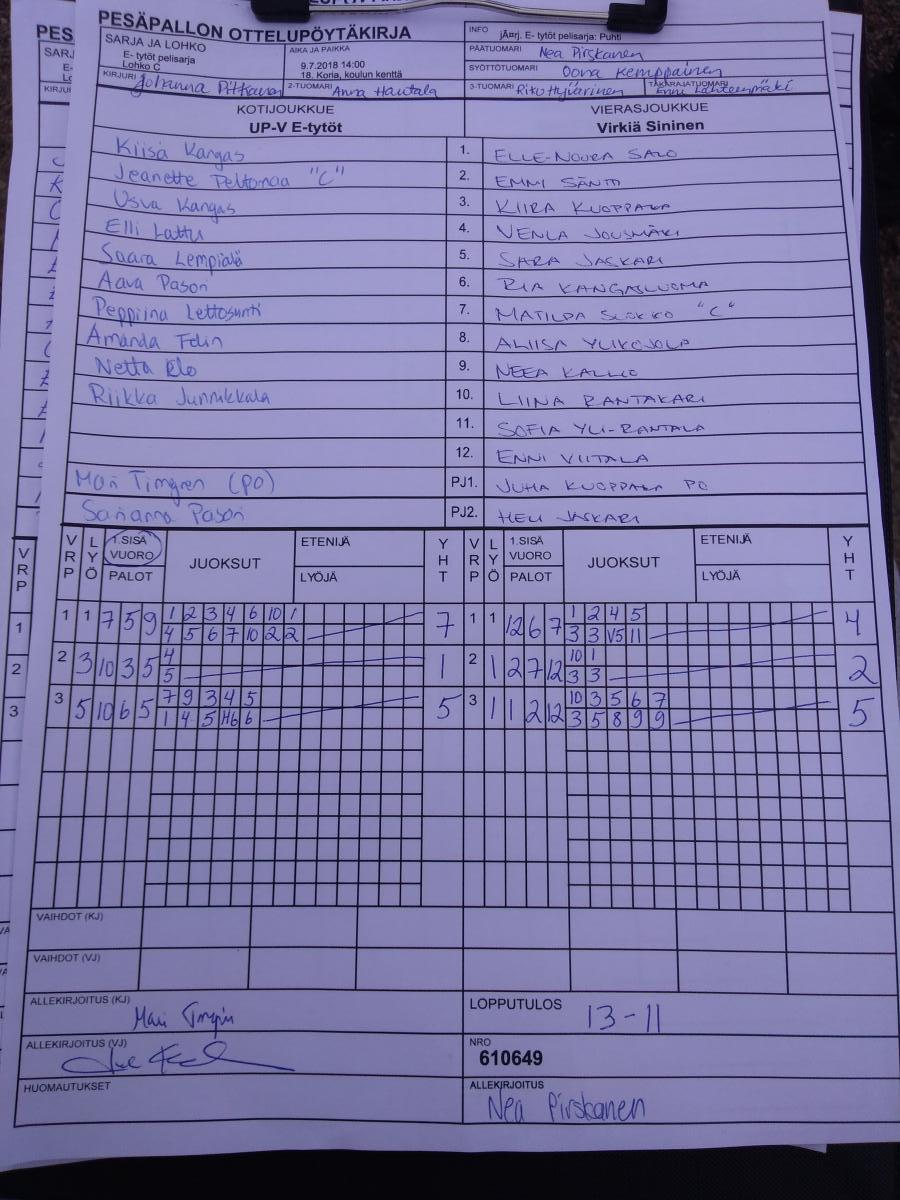 PESÄPALLON OTTELUPÖYTÄKIRJA
INFO jÃ¤rj. E- tytöt pelisarja: Puhti
SARJA JA LOHKO
E- tytöt pelisarja
Lohko C
AIKA JA PAIKKA
9.7.2018 14:00
18. Koria, koulun kenttä
PÄÄTUOMARI Nea Pirskanen
SYÖTTÖTUOMARI Oona Kemppainen
KIRJURI Johanna Pitkänen
2-TUOMARI Anna Hautala
3-TUOMARI Riku Hyvärinen
TAKARAJATUOMARI Enni Lähteenmäki
KOTIJOUKKUE
UP-V E-tytöt
VIERASJOUKKUE
Virkiä Sininen
Kiisa Kangas 1. ELLE-NOORA SALO
Jeanette Peltomaa "C" 2. EMMI SÄNTTI
Usva Kangas 3. KIIRA KUOPPALA
Elli Lattu 4. VENLA JOUSMÄKI
Saara Lempiälä 5. SARA JASKARI
Aava Pason 6. RIA KANGASLUOMA
Peppiina Lettosunti 7. MATILDA SLOKKO "C"
Amanda 8. ALIISA YLIKOJOLA
Netta Elo 9. NEEA KALLIO
Riikka Junnikkala 10. LIINA RANTAKARI
11. SOFIA YLI-RANTALA
12. ENNI VIITALA
Mari Timgren (PO) PJ1. JUHA KUOPPALA PO
Sarianna Pason PJ2. HELI JASKARI
VRP LYÖ 1.SISÄ VUORO PALOT JUOKSUT ETENIJÄ LYÖJÄ YHT VRP LYÖ 1.SISÄ VUORO PALOT JUOKSUT ETENIJÄ LYÖJÄ YHT
1 1 7 5 9 1 2 3 4 6 10 1 7 1 1 12 6 7 1 2 4 5 4
4 5 6 7 10 2 2 3 3 V5 11
2 3 10 3 5 4 1 2 1 2 7 12 10 1 2
5 3 3
3 5 10 6 5 7 9 3 4 5 5 3 1 1 2 12 10 3 5 6 7 5
1 4 5 H6 6 3 5 8 9 9
VAIHDOT (KJ)
VAIHDOT (VJ)
ALLEKIRJOITUS (KJ)
LOPPUTULOS 13-11
ALLEKIRJOITUS (VJ)
NRO
610649
HUOMAUTUKSET
ALLEKIRJOITUS
Nea Pirskanen